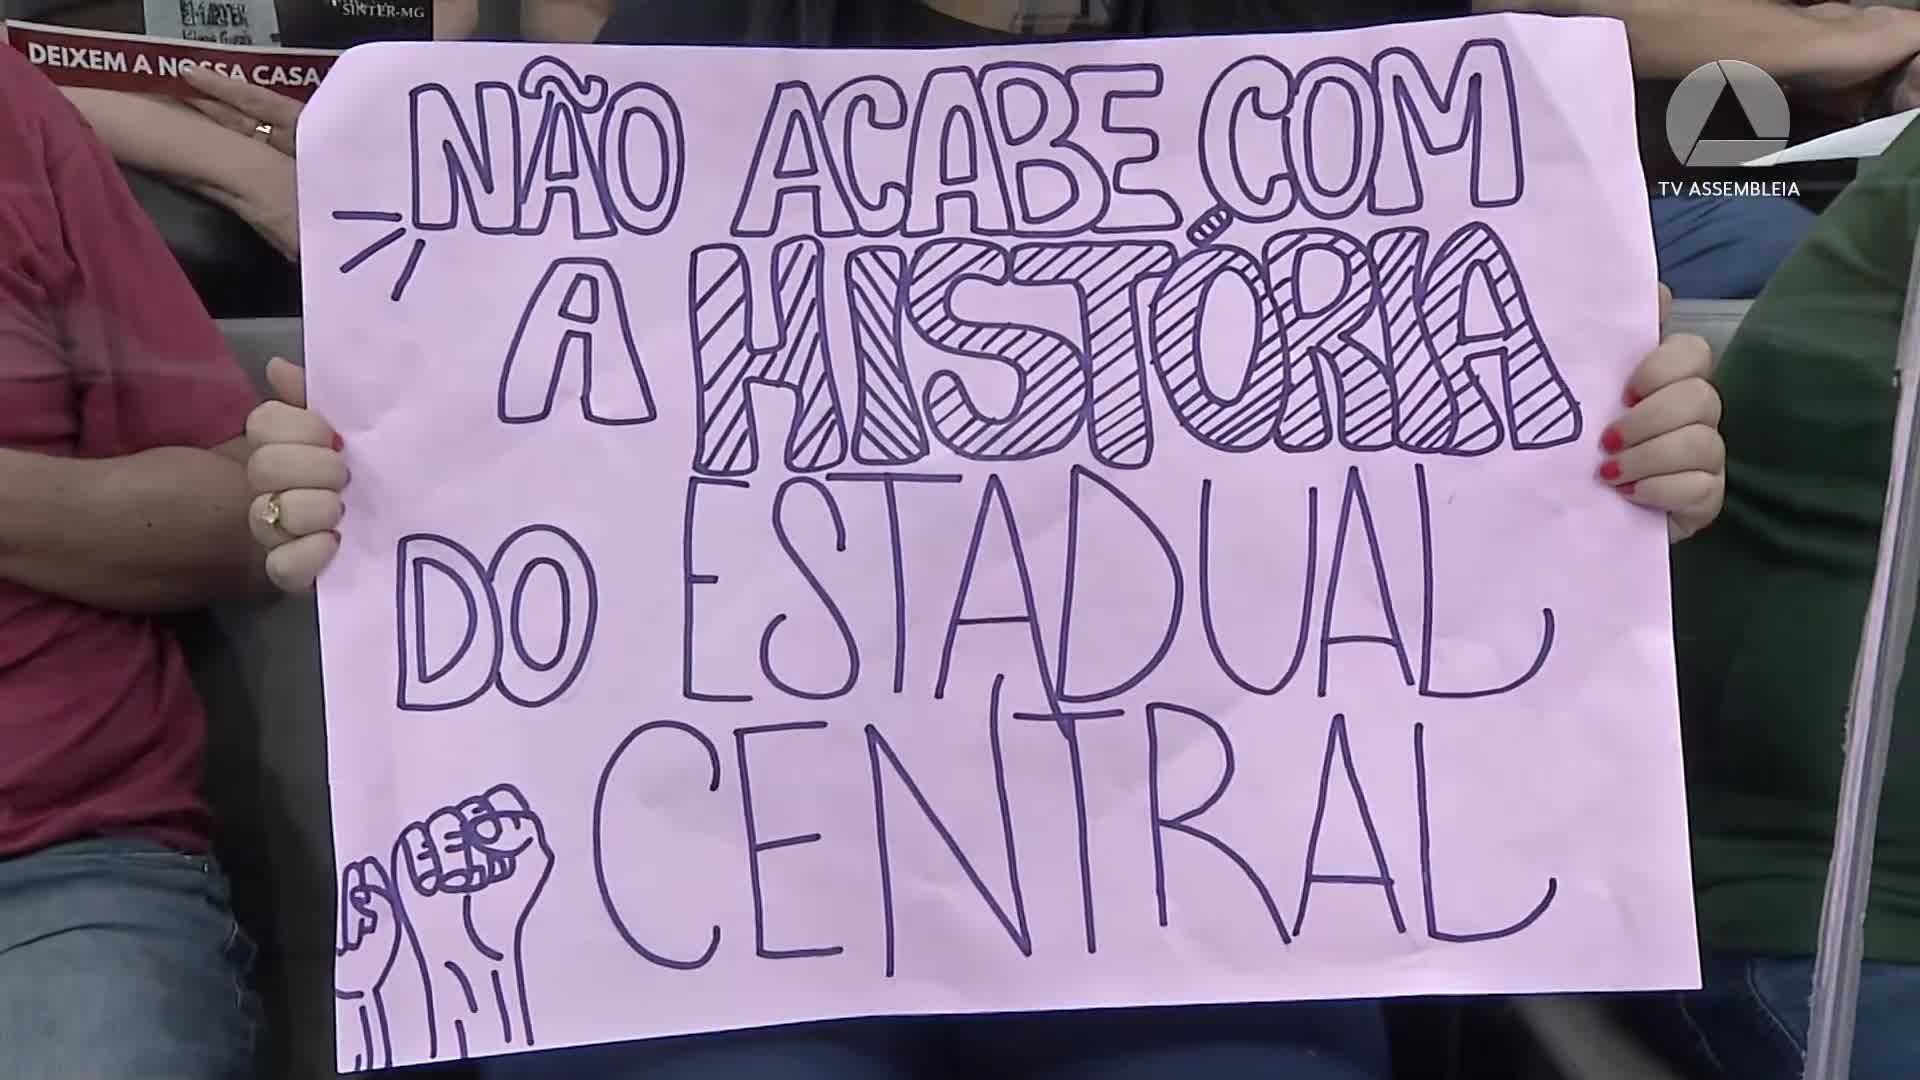 SINTER-MG
DEIXEM A NOSSA CASA
TV ASSEMBLEIA
NÃO ACABE COM
A HISTÓRIA
DO ESTADUAL
CENTRAL